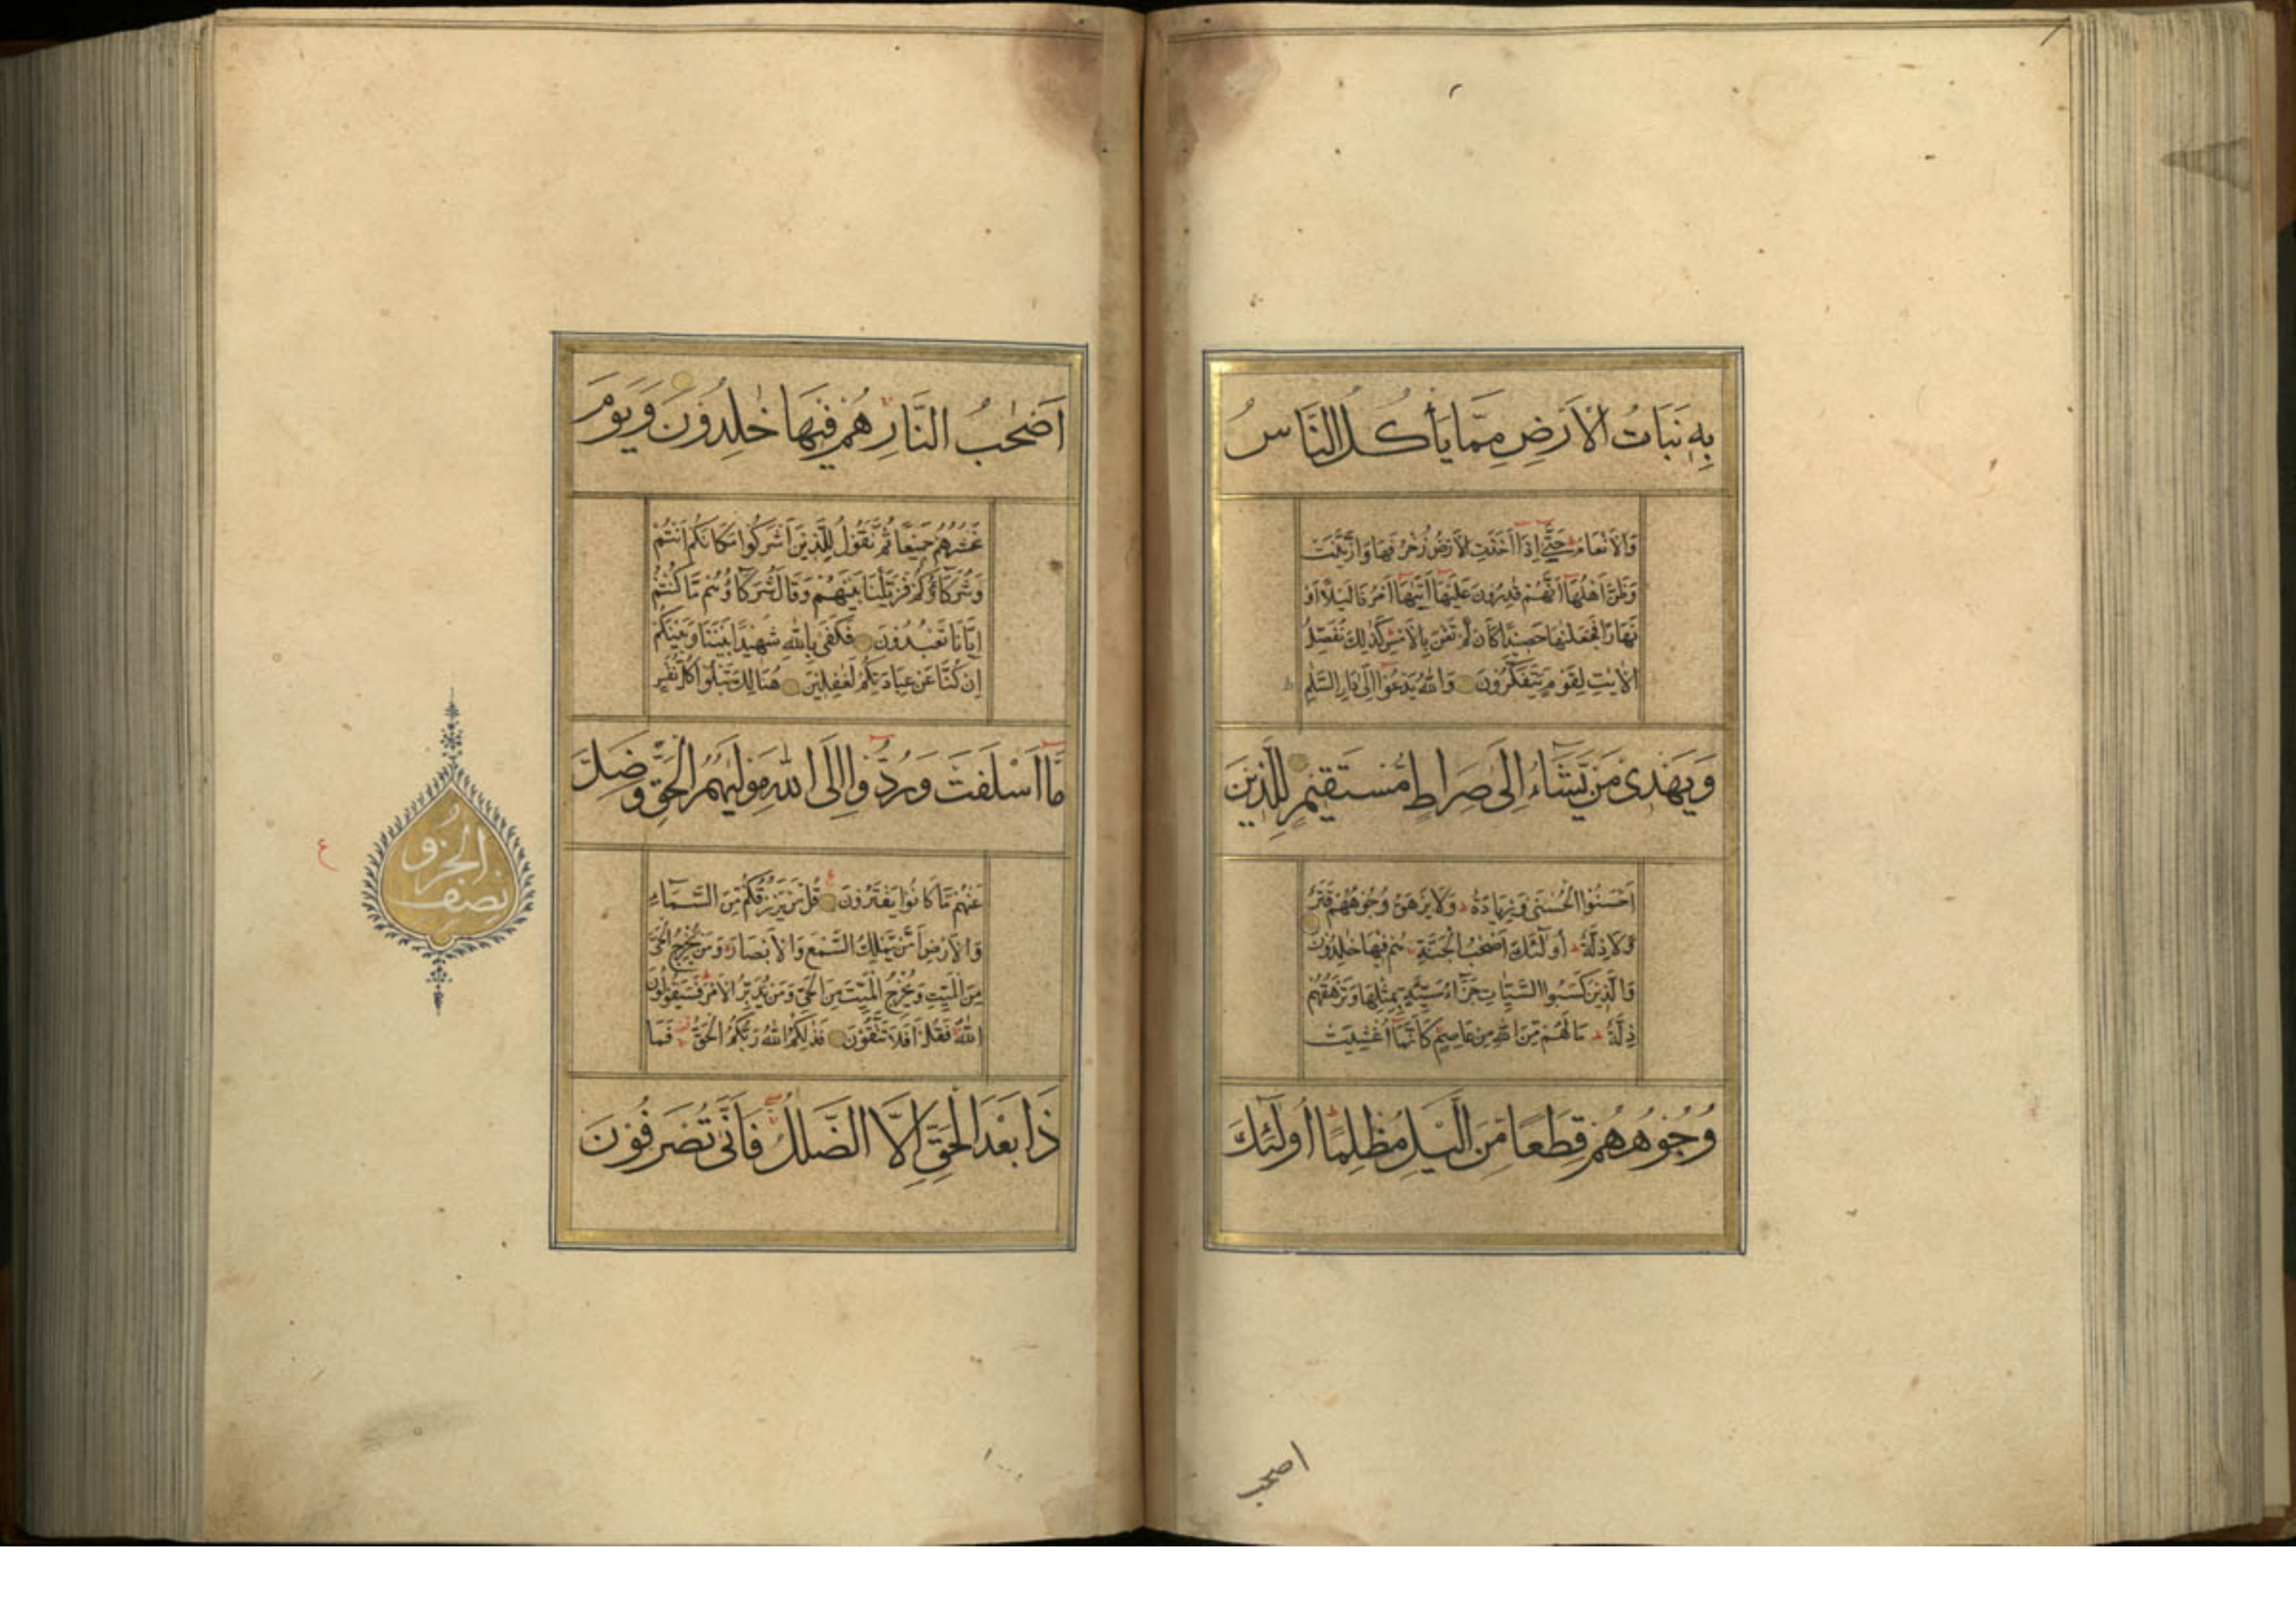 بِهٖ نَبَاتُ الْاَرْضِ مِمَّا يَأْكُلُ النَّاسُ
وَالْاَنْعَامُ حَتّٰى اِذَا اَخَذَتِ الْاَرْضُ زُخْرُفَهَا وَازَّيَّنَتْ
وَظَنَّ اَهْلُهَا اَنَّهُمْ قٰدِرُوْنَ عَلَيْهَا اَتٰىهَا اَمْرُنَا لَيْلًا اَوْ
نَهَارًا فَجَعَلْنٰهَا حَصِيْدًا كَاَنْ لَّمْ تَغْنَ بِالْاَمْسِ كَذٰلِكَ نُفَصِّلُ
الْاٰيٰتِ لِقَوْمٍ يَّتَفَكَّرُوْنَ وَاللّٰهُ يَدْعُوْا اِلٰى دَارِ السَّلٰمِ
وَيَهْدِىْ مَنْ يَّشَاءُ اِلٰى صِرَاطٍ مُّسْتَقِيْمٍ لِلَّذِيْنَ
اَحْسَنُوا الْحُسْنٰى وَزِيَادَةٌ وَلَا يَرْهَقُ وُجُوْهَهُمْ قَتَرٌ
وَّلَا ذِلَّةٌ اُولٰٓئِكَ اَصْحٰبُ الْجَنَّةِ هُمْ فِيْهَا خٰلِدُوْنَ
وَالَّذِيْنَ كَسَبُوا السَّيِّاٰتِ جَزَآءُ سَيِّئَةٍ بِمِثْلِهَا وَتَرْهَقُهُمْ
ذِلَّةٌ مَا لَهُمْ مِّنَ اللّٰهِ مِنْ عَاصِمٍ كَاَنَّمَا اُغْشِيَتْ
وُجُوْهُهُمْ قِطَعًا مِّنَ الَّيْلِ مُظْلِمًا اُولٰٓئِكَ
اصحب
اَصْحٰبُ النَّارِ هُمْ فِيْهَا خٰلِدُوْنَ وَيَوْمَ
نَحْشُرُهُمْ جَمِيْعًا ثُمَّ نَقُوْلُ لِلَّذِيْنَ اَشْرَكُوْا مَكَانَكُمْ اَنْتُمْ
وَشُرَكَآؤُكُمْ فَزَيَّلْنَا بَيْنَهُمْ وَقَالَ شُرَكَآؤُهُمْ مَّا كُنْتُمْ
اِيَّانَا تَعْبُدُوْنَ فَكَفٰى بِاللّٰهِ شَهِيْدًا بَيْنَنَا وَبَيْنَكُمْ
اِنْ كُنَّا عَنْ عِبَادَتِكُمْ لَغٰفِلِيْنَ هُنَالِكَ تَبْلُوْا كُلُّ نَفْسٍ
مَّا اَسْلَفَتْ وَرُدُّوْا اِلَى اللّٰهِ مَوْلٰىهُمُ الْحَقِّ وَضَلَّ
عَنْهُمْ مَّا كَانُوْا يَفْتَرُوْنَ قُلْ مَنْ يَّرْزُقُكُمْ مِّنَ السَّمَآءِ
وَالْاَرْضِ اَمَّنْ يَّمْلِكُ السَّمْعَ وَالْاَبْصَارَ وَمَنْ يُّخْرِجُ الْحَىَّ
مِنَ الْمَيِّتِ وَيُخْرِجُ الْمَيِّتَ مِنَ الْحَىِّ وَمَنْ يُّدَبِّرُ الْاَمْرَ فَسَيَقُوْلُوْنَ
اللّٰهُ فَقُلْ اَفَلَا تَتَّقُوْنَ فَذٰلِكُمُ اللّٰهُ رَبُّكُمُ الْحَقُّ فَمَا
ذَا بَعْدَ الْحَقِّ اِلَّا الضَّلٰلُ فَاَنّٰى تُصْرَفُوْنَ
نصف الجزو
ع